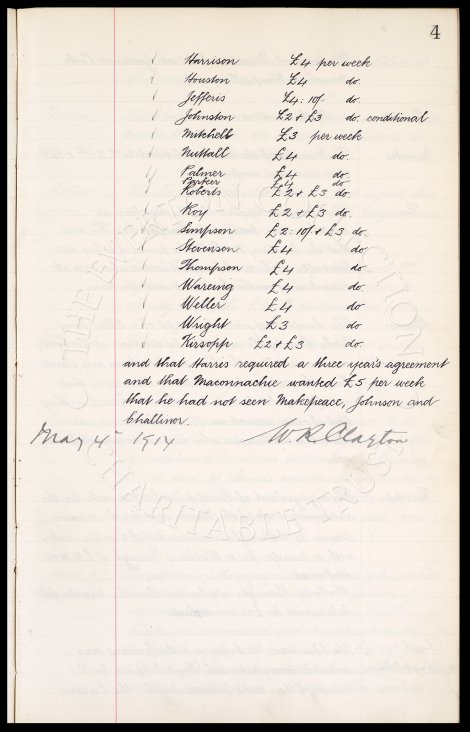 4
Harrison £4 per week
Houston £4 do.
Jefferis £4:10/- do.
Johnston £2 + £3 do. conditional
Mitchell £3 per week
Nuttall £4 do.
Palmer £4 do.
Parker £4 do
Roberts £2 + £3 do.
Roy £2 + £3 do.
Simpson £2:10/- + £3 do.
Stevenson £4 do.
Thompson £4 do
Wareing £4 do
Weller £4 do
Wright £3 do
Kirsopp £2 + £3 do.
and that Harris required a three year's agreement
and that Maconnachie wanted £5 per week
that he had not seen Makepeace, Johnson and
Challinor.
May 4th 1914 W R Clayton
THE NEATH COLLECTION
CHARITABLE TRUST